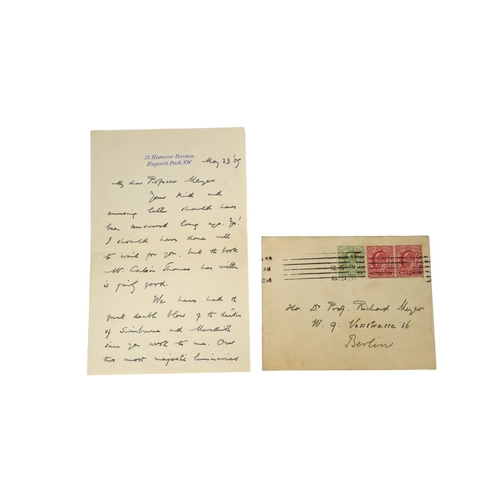 17, Hanover Terrace,
Regent's Park, N.W.
May 23 '09
My dear Professor Meyer
Your kind and
amusing letter should have
been answered long ago. Yes!
I should have done well
to wait for you, but the book
Mr. Calvin Thomas has written
is fairly good.
We have had the
great double blow of the deaths
of Swinburne and Meredith
since you wrote to me. Our
two most majestic luminaries
Hr. Dr. Prof. Richard Meyer
W. 9. Vossstrasse 16
Berlin